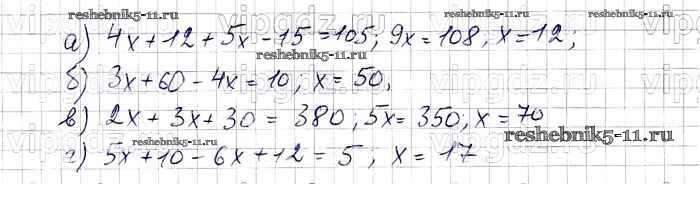 reshebnik5-11.ru
reshebnik5-11.ru
а) 4x+12+5x-15=105; 9x=108, x=12;
reshebnik5-11.ru
б) 3x+60-4x=10, x=50,
в) 2x+3x+30=380; 5x=350, x=70
reshebnik5-11.ru
reshebnik5-11.ru
г) 5x+10-6x+12=5, x=17
reshebnik5-11.ru